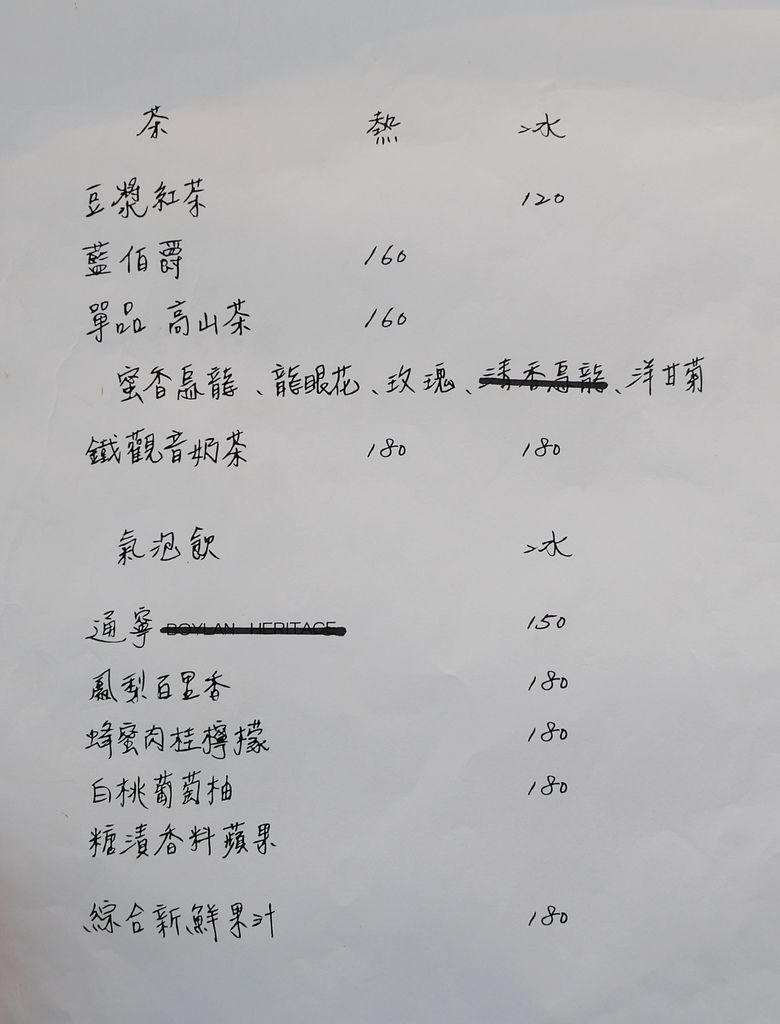 茶 熱 冰
豆漿紅茶 120
藍伯爵 160
單品 高山茶 160
蜜香烏龍、龍眼花、玫瑰、清香烏龍、洋甘菊
鐵觀音奶茶 180 180
氣泡飲 冰
通寧 BOYLAN HERITAGE 150
鳳梨百里香 180
蜂蜜肉桂檸檬 180
白桃葡萄柚 180
糖漬香料蘋果
綜合新鮮果汁 180